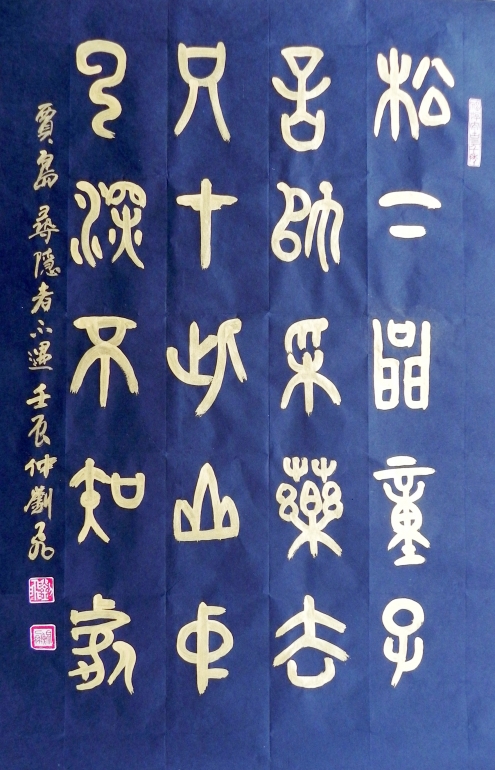 松下問童子
言師采藥去
只在此山中
云深不知處
賈島 尋隱者不遇 壬辰仲劉